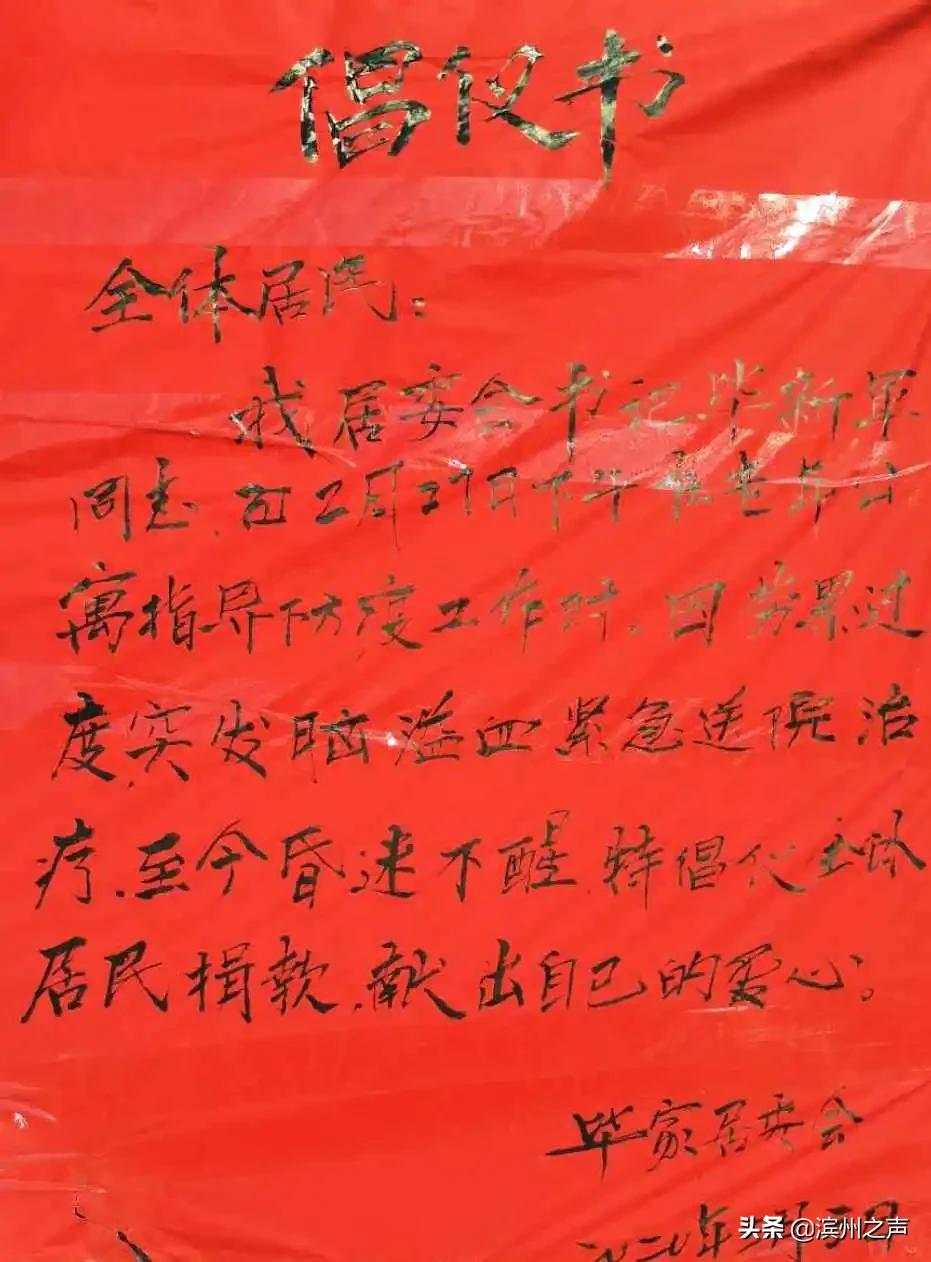 倡仪书
全体居民:
我居委会书记毕新军
同志,在2月27日下午在老年公
寓指导防疫工作时,因劳累过
度突发脑溢血紧急送院治
疗、至今昏迷不醒,特倡仪全体
居民捐款,献出自己的爱心。
毕家居委会
二〇二〇年三月二日
头条 @滨州之声